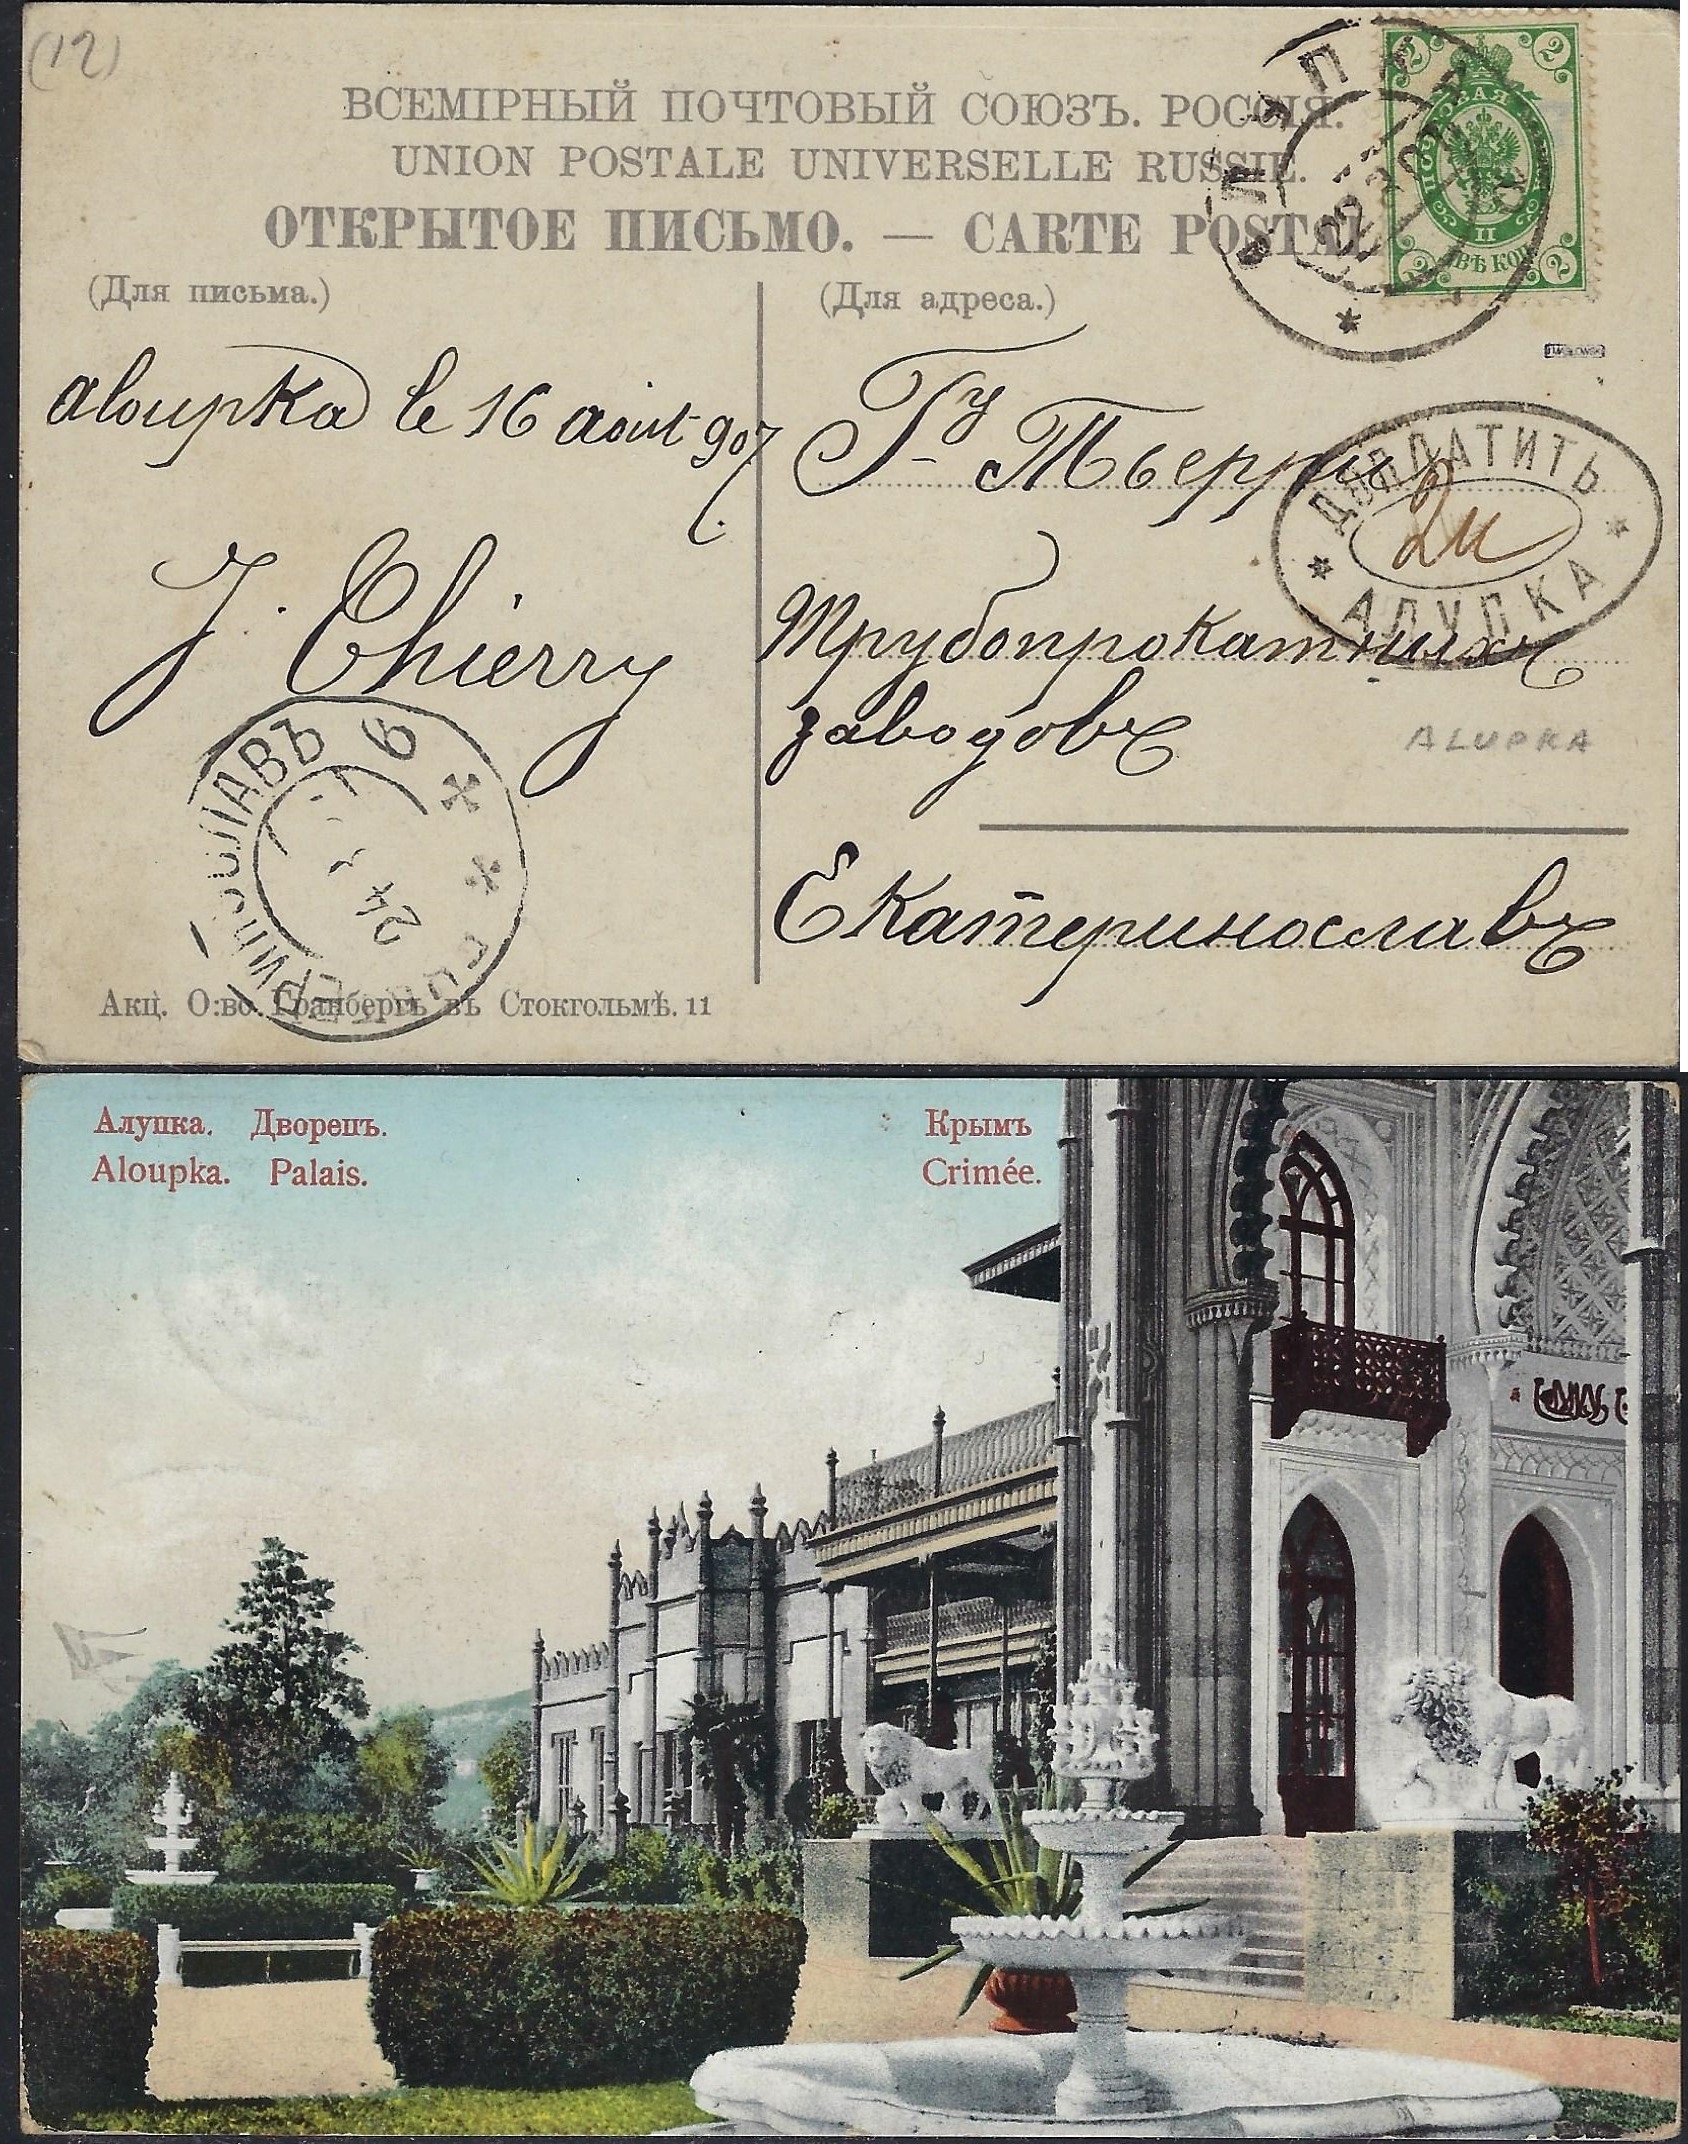 (12)
ВСЕМІРНЫЙ ПОЧТОВЫЙ СОЮЗЪ. РОССІЯ.
UNION POSTALE UNIVERSELLE RUSSIE.
ОТКРЫТОЕ ПИСЬМО. — CARTE POSTAL
2 2
II
ДВѢ КОП
2 2
22
(Для письма.)
(Для адреса.)
Aloupka le 16 août 907
J. Thierry
Гну Тьерри
Трубопрокатныхъ
заводовъ
Екатеринославъ
ДОПЛАТИТЬ
2к
АЛУПКА
ALUPKA
24
Акц. О:во. Гранбергъ въ Стокгольмѣ. 11
Алупка. Дворецъ.
Aloupka. Palais.
Крымъ
Crimée.